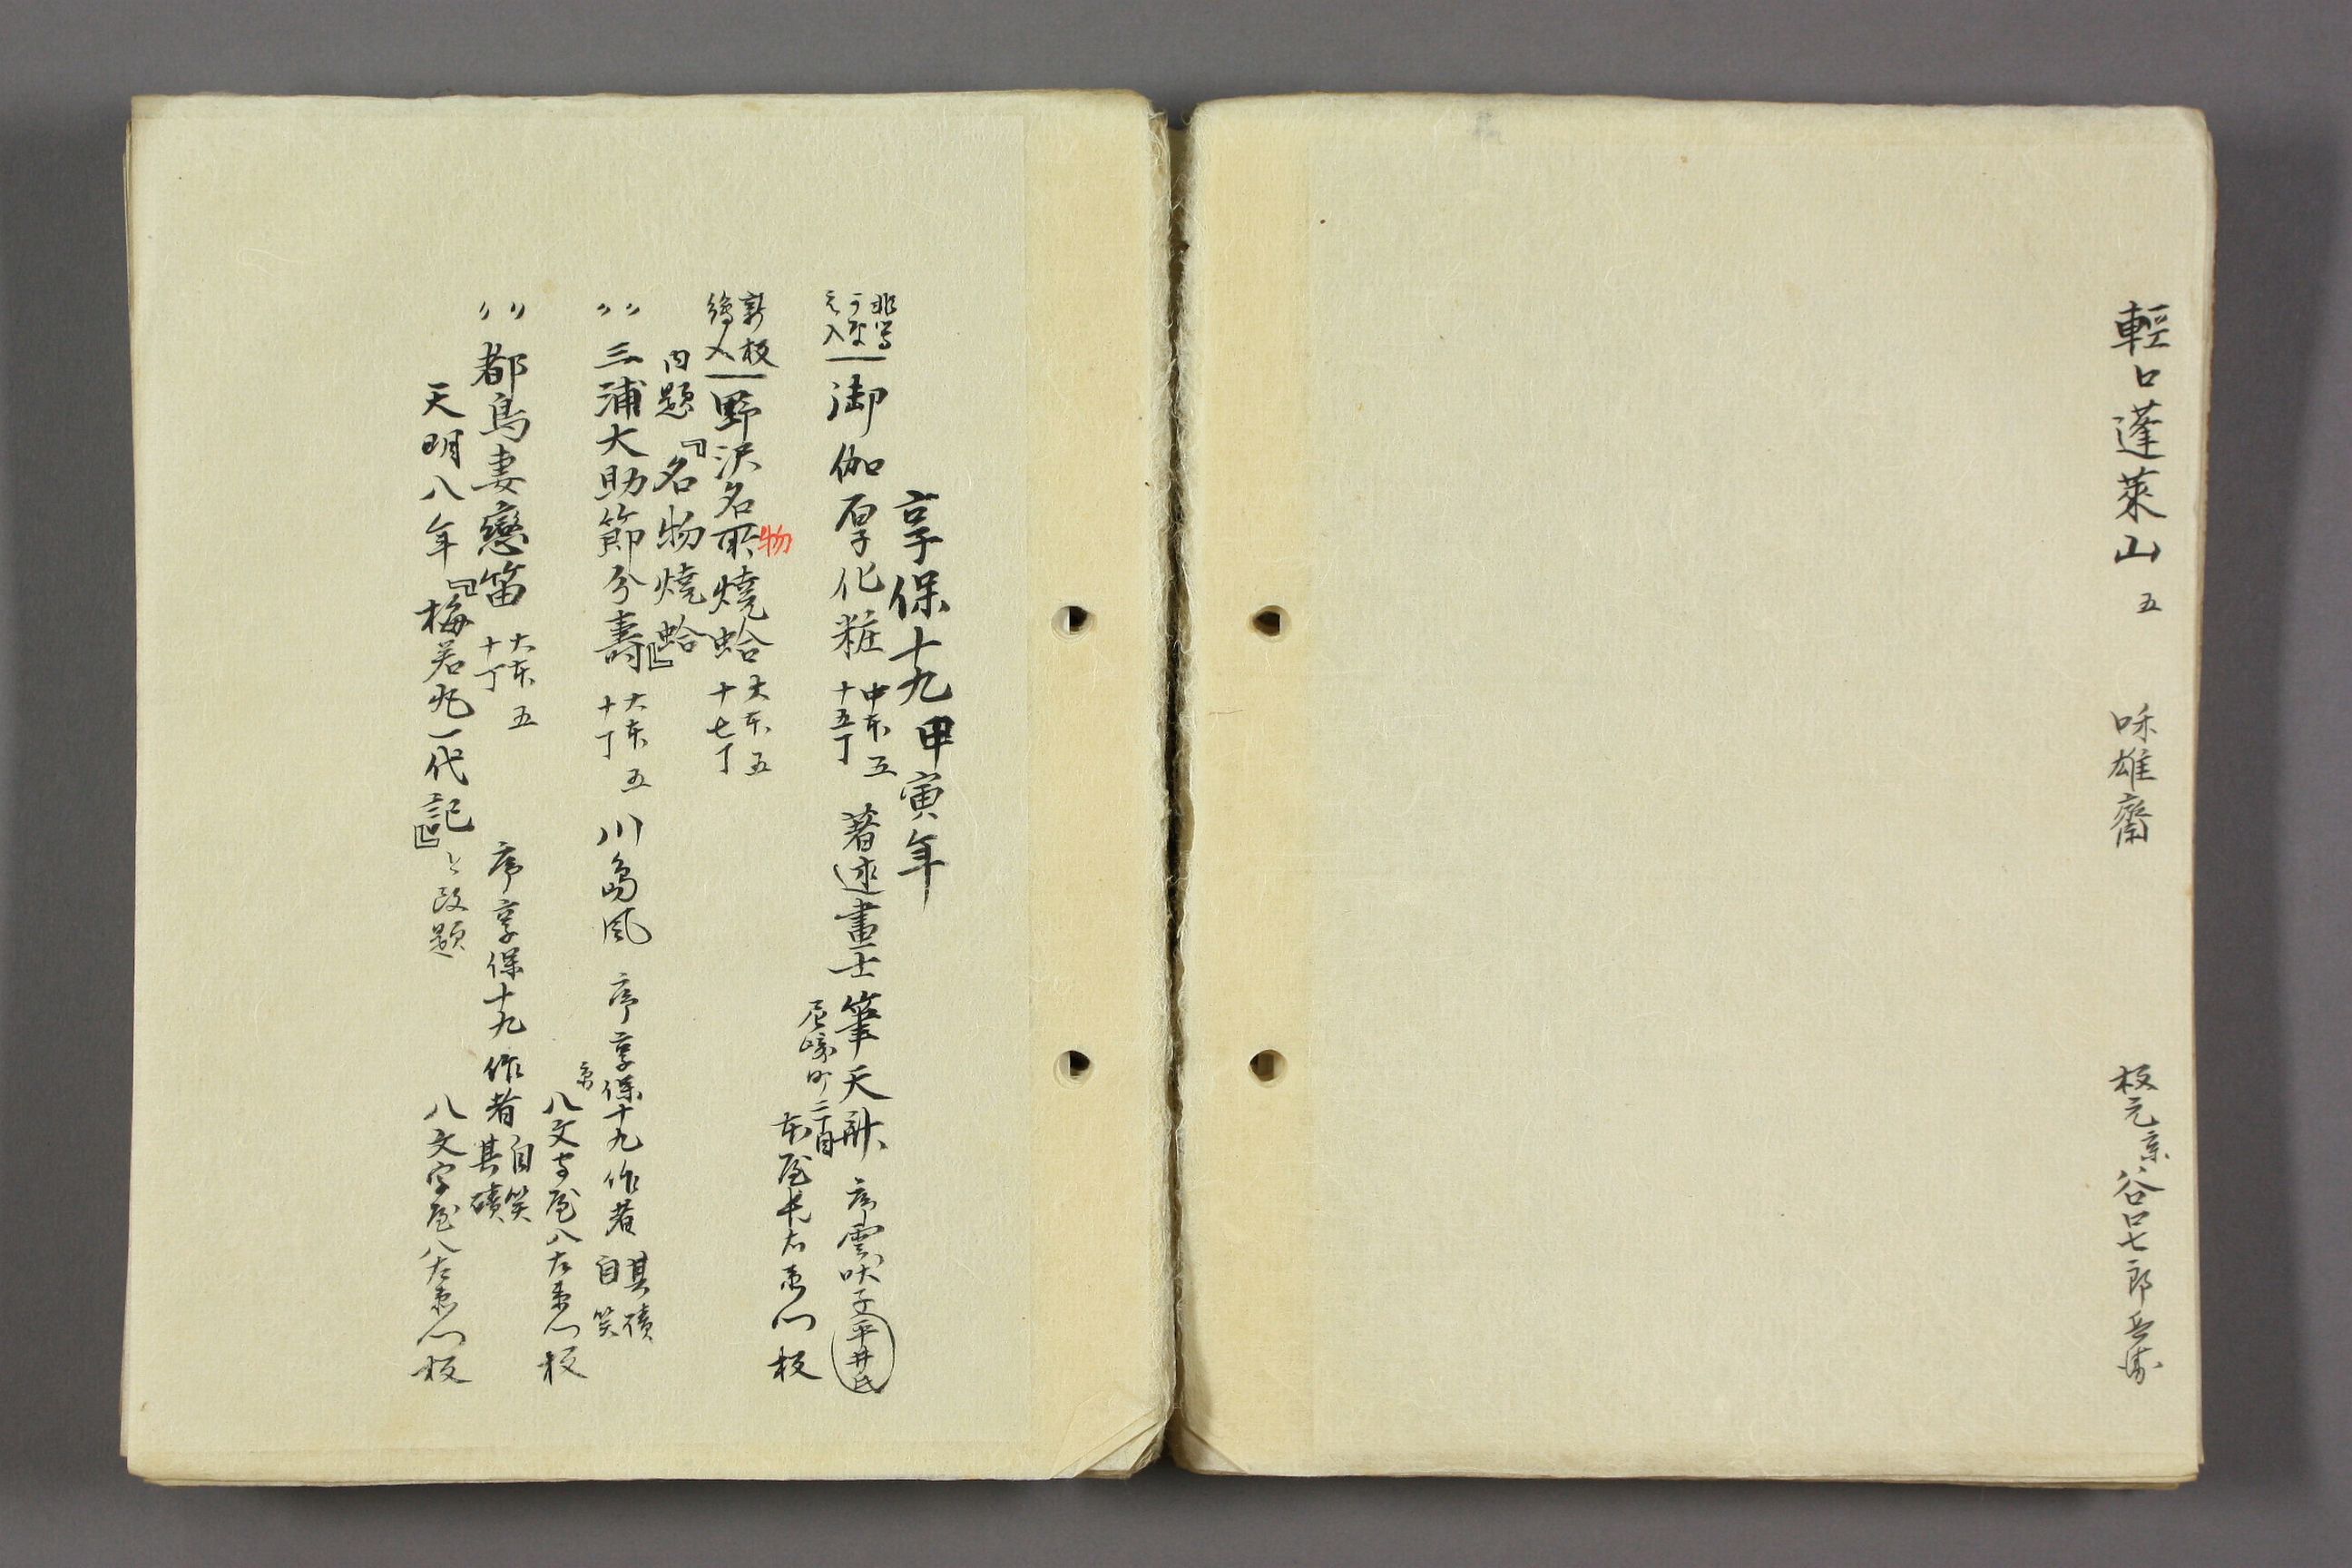 輕口蓬莱山 五 咊雄齋 板元京谷口七郎兵衛
享保十九甲寅年
御伽厚化粧 中本五 十五丁 著述畫士筆天齋 序雲峡子平井氏
尼崎町二丁目 本屋長右衛門板
新板 繪入 野沢名所焼蛤 大本五 十七丁
物
内題『名物焼蛤』
〃〃 三浦大助節分壽 大本五 十丁 川島風 序享保十九 作者 其磧 自笑
京 八文字屋八左衛門板
〃〃 都鳥妻戀笛 大本五 十丁 序享保十九 作者 自笑 其磧
天明八年『梅若丸一代記』と改題 八文字屋八左衛門板